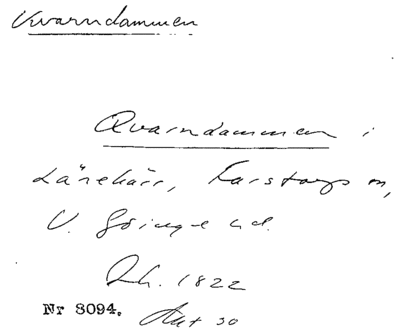 Kvarndammen
Qvarndammen i
Länehärr, Farstorps sn,
V. Göinge hd.
Lh. 1822
Nr 8094. Akt 30